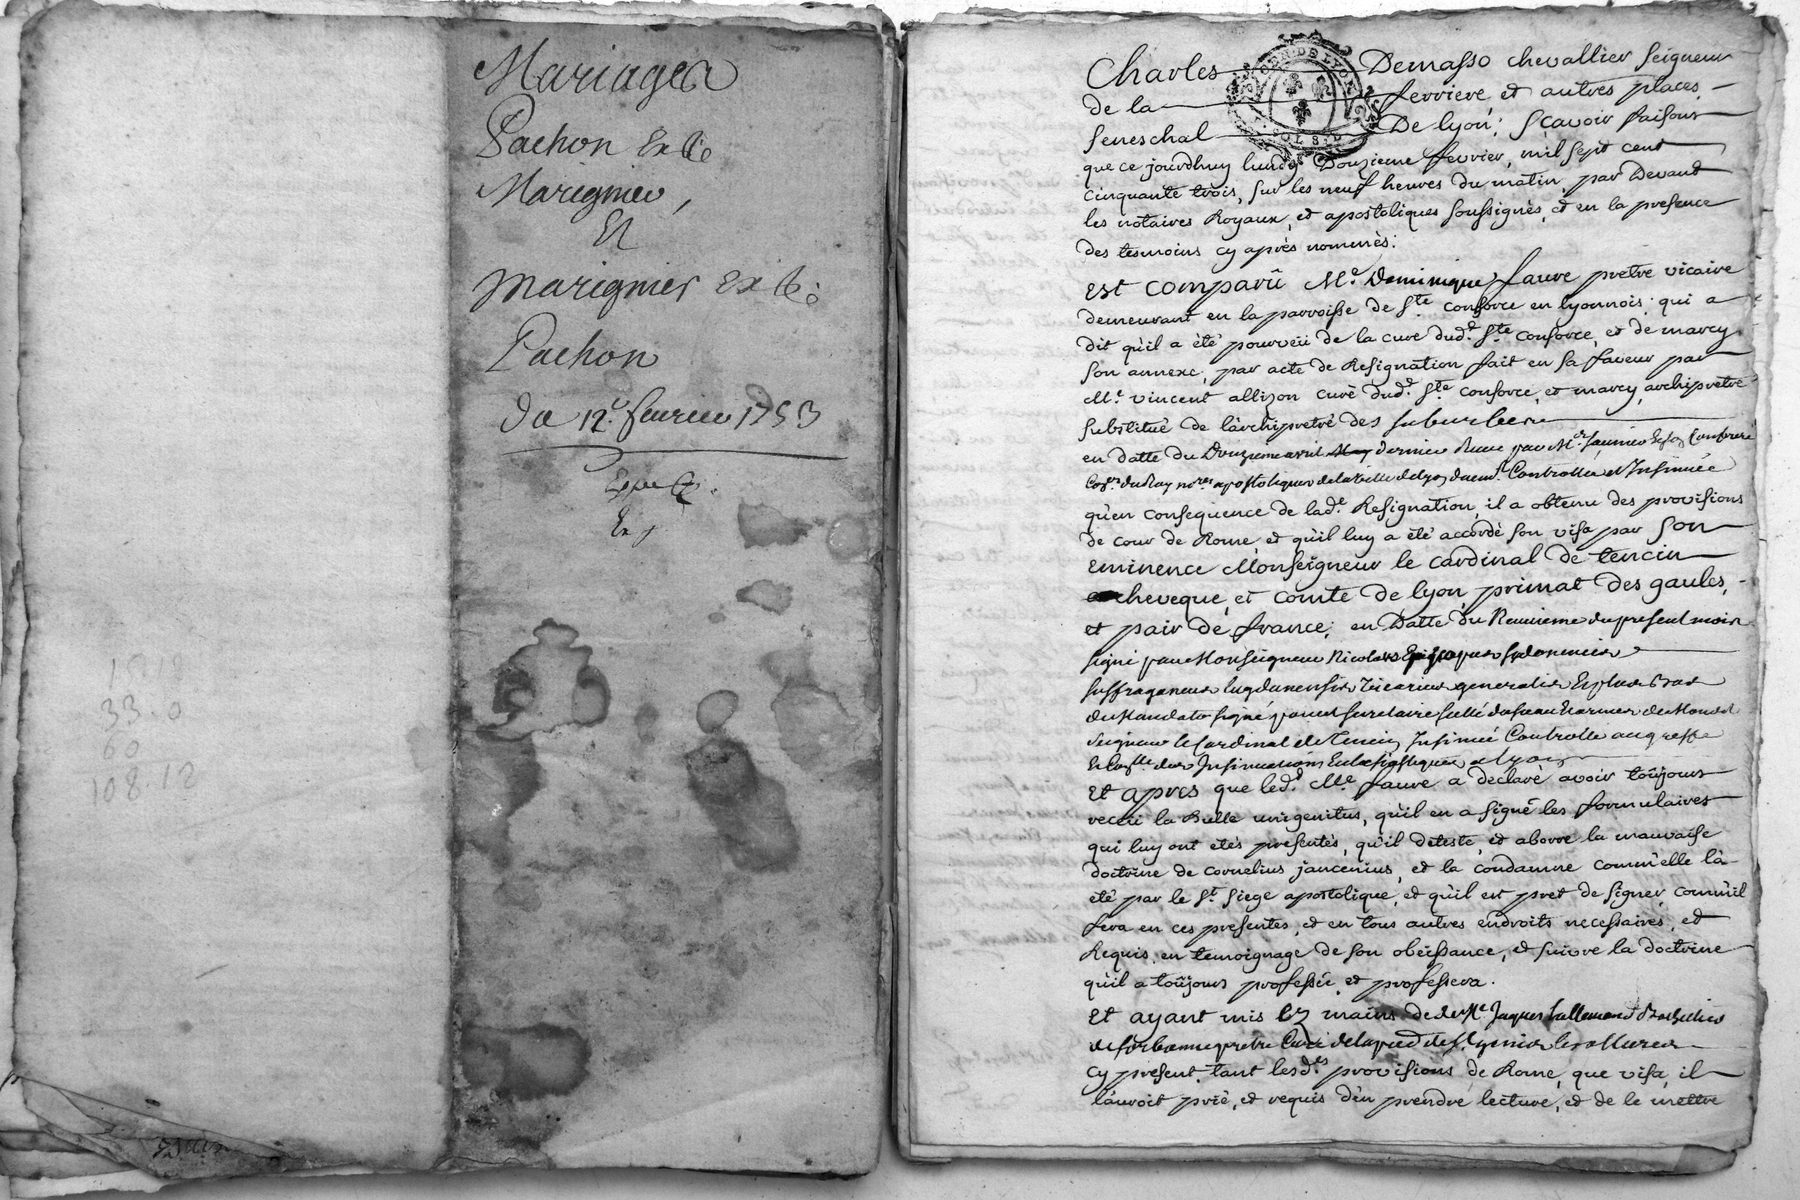 Mariages
Pachon
Marignier,
Et
Marignier
Pachon
Du 12.e fevrier 1753
15 12
33. 0
60
108. 12
GEN. DE LYON
SOLS
Charles Demasso chevallier seigneur
de la ferriere, et autres places,
seneschal De lyon; sçavoir faisons
que ce jourdhuy lundy Douzieme fevrier, mil sept cent
cinquante trois, sur les neuf heures du matin, par Devant
les notaires Royaux, et apostoliques soussignés, et en la presence
des tesmoins cy après nommés:
est comparû Me. Dominique faure pretre vicaire
demeurant en la parroisse de Ste consorce en lyonnois: qui a
dit qu'il a été pourveü de la cure dud.t Ste consorce, et de marcy
son annexe, par acte de Resignation fait en sa faveur par
Me. vincent allizon curé dud.t Ste consorce, et marcy, archipretre
substitué de l'archipretré des suburbes
en datte du Douzieme avril dernier Recu par Me
apostoliques de la ville de lyon Controllé et Insinuée
qu'en consequence de lad.e Resignation, il a obtenu des provisions
de cour de Rome, et qu'il luy a été accordé son visa par son
eminence Monseigneur le cardinal de tencin
archeveque, et comte de lyon, primat des gaules,
et pair de france; en Datte du Neuvieme du present mois
signé par Monseigneur Nicolas
suffraganeus lugdunensis vicarius generalis Et plus bas
de Mandato signé secretaire scellé du sceau
seigneur le Cardinal de Tencin Insinué Controllé au greffe
des Insinuations Ecclesiastiques a lyon
et apres que led.t Me. faure a declaré avoir toûjours
receü la Bulle unigenitus, qu'il en a signé les formulaires
qui luy ont étés presentés, qu'il deteste, et aborre la mauvaise
doctrine de cornelius jancenius, et la condamne comm'elle l'a
été par le St. siege apostolique, et qu'il est pret de signer, comm'il
fera en ces presentes, et en tous autres endroits necessaires, et
Requis, en temoignage de son obeissance, et suivre la doctrine
qu'il a toûjours professée, et professera.
et ayant mis ez mains de Me. Jaques lallemand Bachelier
de sorbonne pretre Curé de la par
cy present, tant lesd.es provisions de Rome, que visa, il
l'auroit prié, et requis d'en prendre lecture, et de le mettre